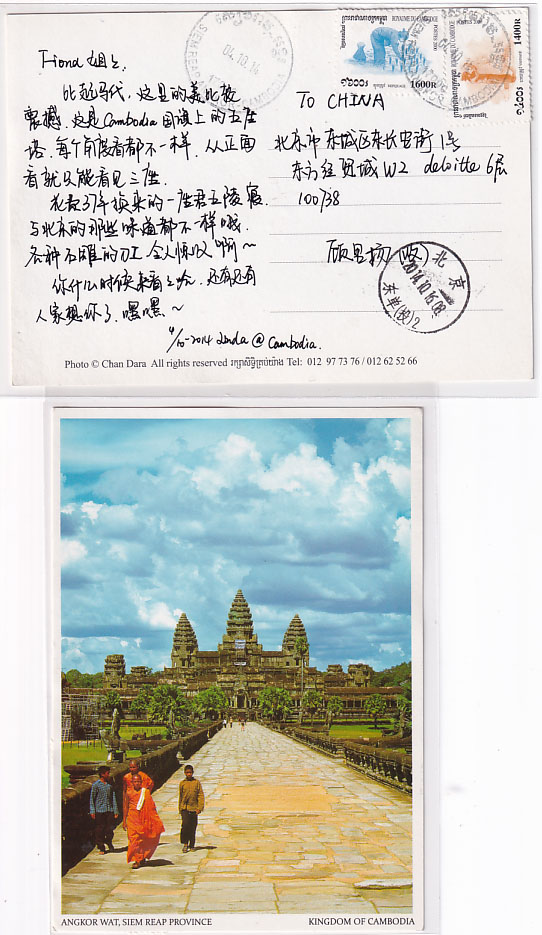 Fiona 姐:
比起马代，这里的美比较
震撼。这是Cambodia国旗上的五座
塔，每个角度看都不一样，从正面
看就只能看见三座。
花数37年换来的一座君王陵寝
与北京的那些味道都不一样哦。
各种石雕的刀工令人惊叹啊～
你什么时候来看看哈，还有还有
人家想你了，嘿嘿～
4/10-2014 Linda @ Cambodia.
TO CHINA
北京市东城区东长安街1号
东方经贸城W2 deloitte 6Fl
100738
(收)
SIEM REAP
04.10.
ROYAUME DU CAMBODGE
POSTES 2001
1600R
1400R
北京
2014.10.16.08
东单(投)2
Photo © Chan Dara All rights reserved រក្សាសិទ្ធិគ្រប់យ៉ាង Tel: 012 97 73 76 / 012 62 52 66
ANGKOR WAT, SIEM REAP PROVINCE
KINGDOM OF CAMBODIA